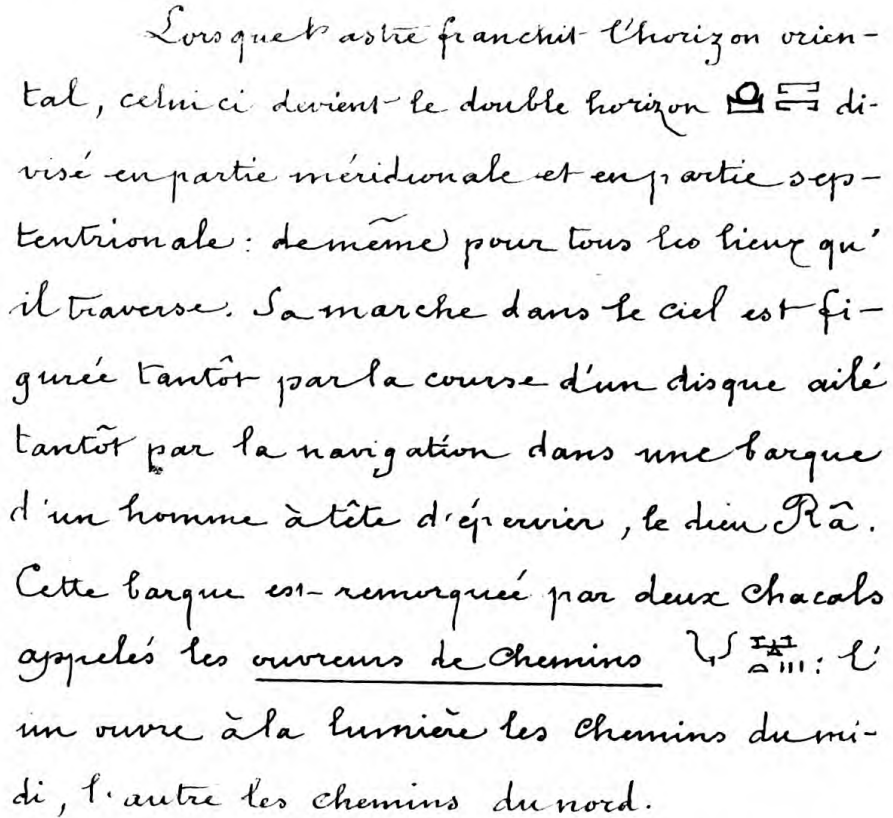 Lorsque l'astre franchit l'horizon orien-
tal, celui ci devient le double horizon 𓈌 di-
visé en partie méridionale et en partie sep-
tentrionale : de même pour tous les lieux qu'
il traverse. Sa marche dans le ciel est fi-
gurée tantôt par la course d'un disque ailé
tantôt par la navigation dans une barque
d'un homme à tête d'épervier, le dieu Râ.
Cette barque est remorquée par deux chacals
appelés les ouvreurs de chemins : l'
un ouvre à la lumière les chemins du mi-
di, l'autre les chemins du nord.